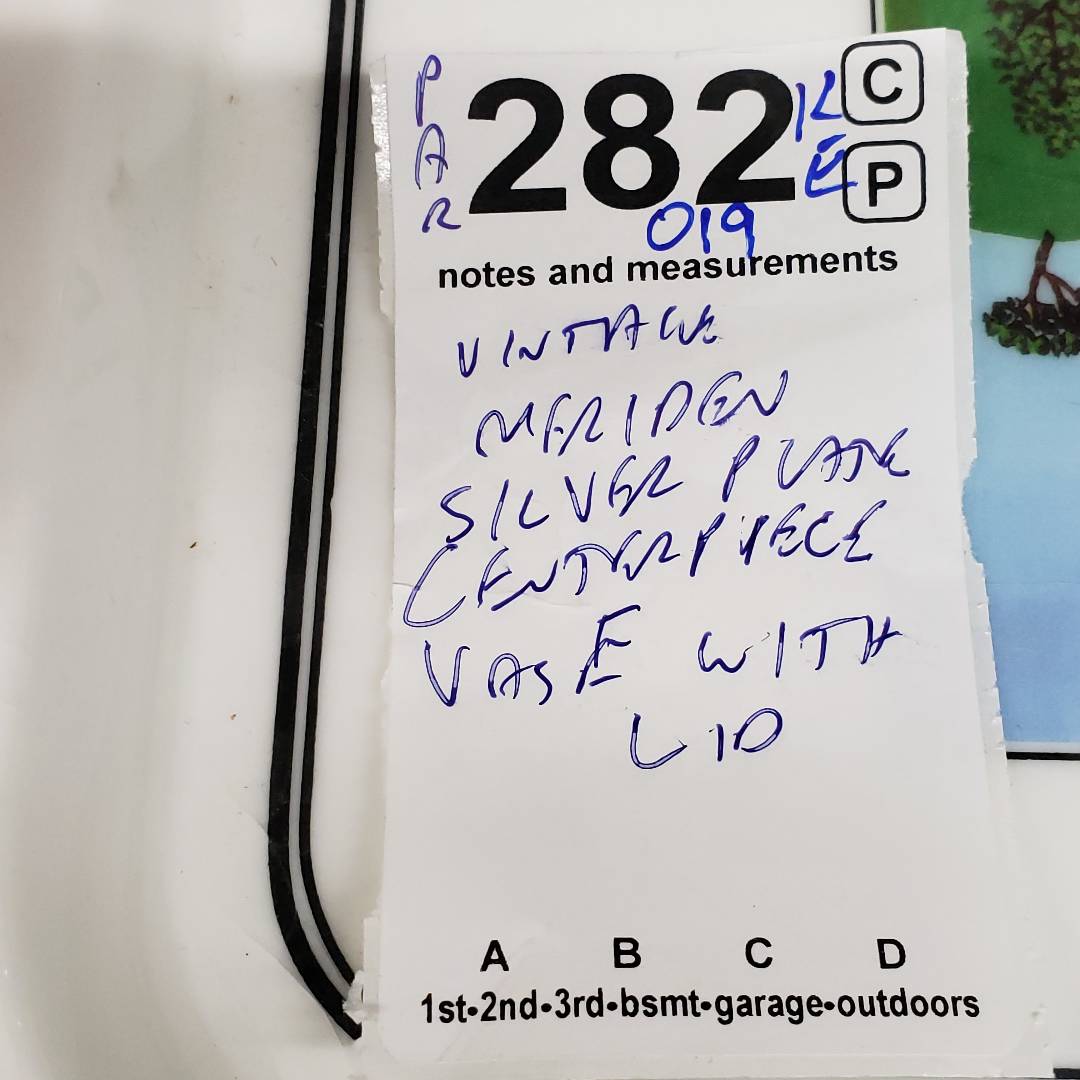 PAR
282
KE
C
P
019
notes and measurements
VINTAGE
MERIDEN
SILVER PLATE
CENTERPIECE
VASE WITH
LID
A B C D
1st•2nd•3rd•bsmt•garage•outdoors